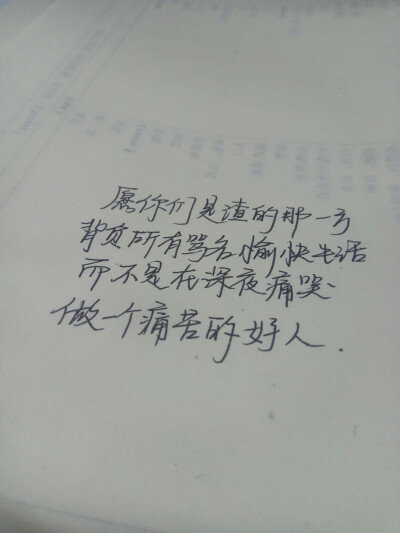 愿你们是渣的那一方
背负所有骂名愉快生活
而不是在深夜痛哭
做一个痛苦的好人.